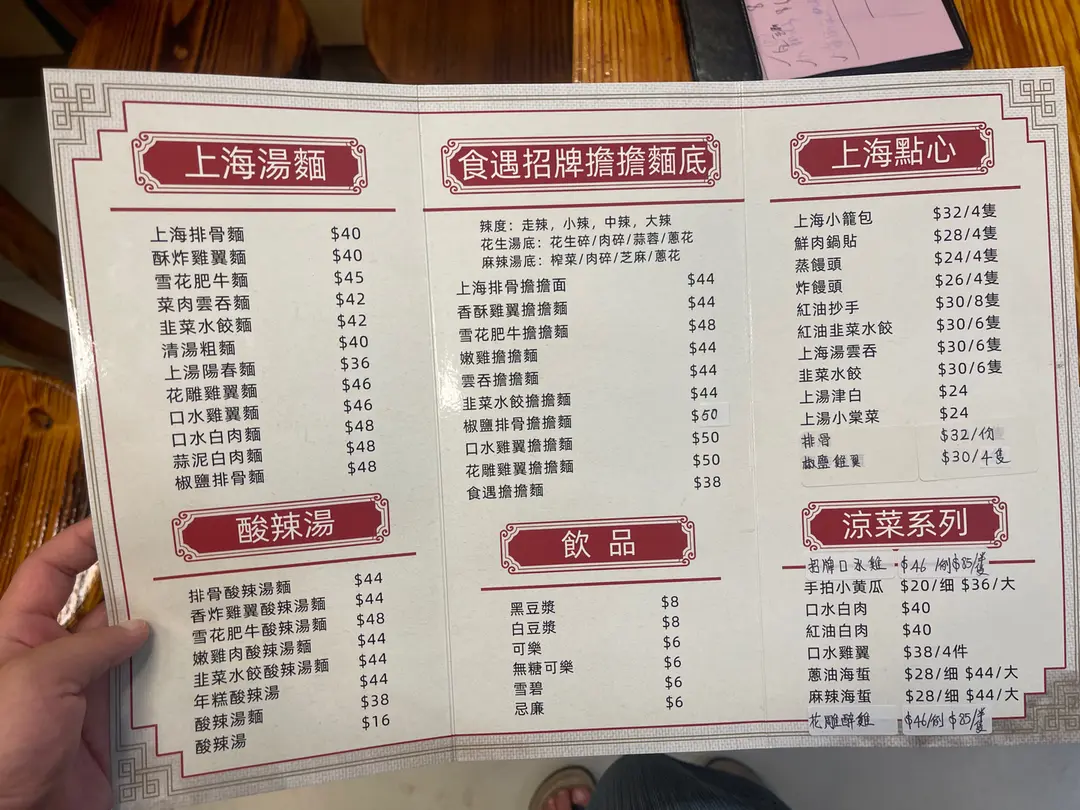 上海湯麵
上海排骨麵 $40
酥炸雞翼麵 $40
雪花肥牛麵 $45
菜肉雲吞麵 $42
韭菜水餃麵 $42
清湯粗麵 $40
上湯陽春麵 $36
花雕雞翼麵 $46
口水雞翼麵 $46
口水白肉麵 $48
蒜泥白肉麵 $48
椒鹽排骨麵 $48
酸辣湯
排骨酸辣湯麵 $44
香炸雞翼酸辣湯麵 $44
雪花肥牛酸辣湯麵 $48
嫩雞肉酸辣湯麵 $44
韭菜水餃酸辣湯麵 $44
年糕酸辣湯 $44
酸辣湯麵 $38
酸辣湯 $16
食遇招牌擔擔麵底
辣度：走辣，小辣，中辣，大辣
花生湯底：花生碎/肉碎/蒜蓉/蔥花
麻辣湯底：榨菜/肉碎/芝麻/蔥花
上海排骨擔擔面 $44
香酥雞翼擔擔麵 $44
雪花肥牛擔擔麵 $48
嫩雞擔擔麵 $44
雲吞擔擔麵 $44
韭菜水餃擔擔麵 $44
椒鹽排骨擔擔麵 $50
口水雞翼擔擔麵 $50
花雕雞翼擔擔麵 $50
食遇擔擔麵 $38
飲品
黑豆漿 $8
白豆漿 $8
可樂 $6
無糖可樂 $6
雪碧 $6
忌廉 $6
上海點心
上海小籠包 $32/4隻
鮮肉鍋貼 $28/4隻
蒸饅頭 $24/4隻
炸饅頭 $26/4隻
紅油抄手 $30/8隻
紅油韭菜水餃 $30/6隻
上海湯雲吞 $30/6隻
韭菜水餃 $30/6隻
上湯津白 $24
上湯小棠菜 $24
排骨 $32/
椒鹽雞翼 $30/4隻
涼菜系列
招牌口水雞 $46/例 $85/隻
手拍小黄瓜 $20/细 $36/大
口水白肉 $40
紅油白肉 $40
口水雞翼 $38/4件
蔥油海蜇 $28/细 $44/大
麻辣海蜇 $28/细 $44/大
花雕醉雞 $46/例 $85/隻